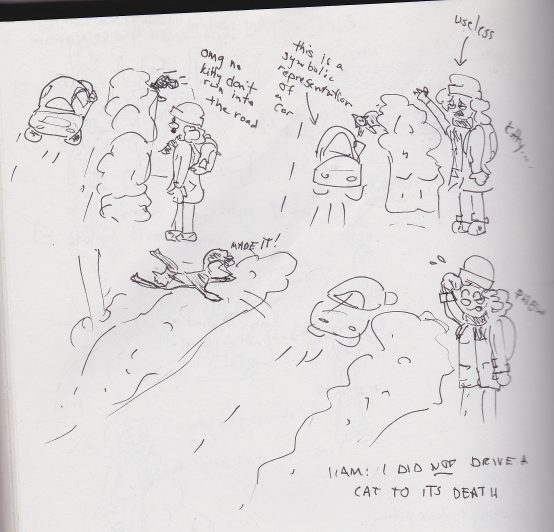 omg no
kitty don't
run into
the road
this is a
symbolic
representation
of
a
car
useless
kitty...
MADE IT!
PHEW
11AM: I DID NOT DRIVE A
CAT TO ITS DEATH